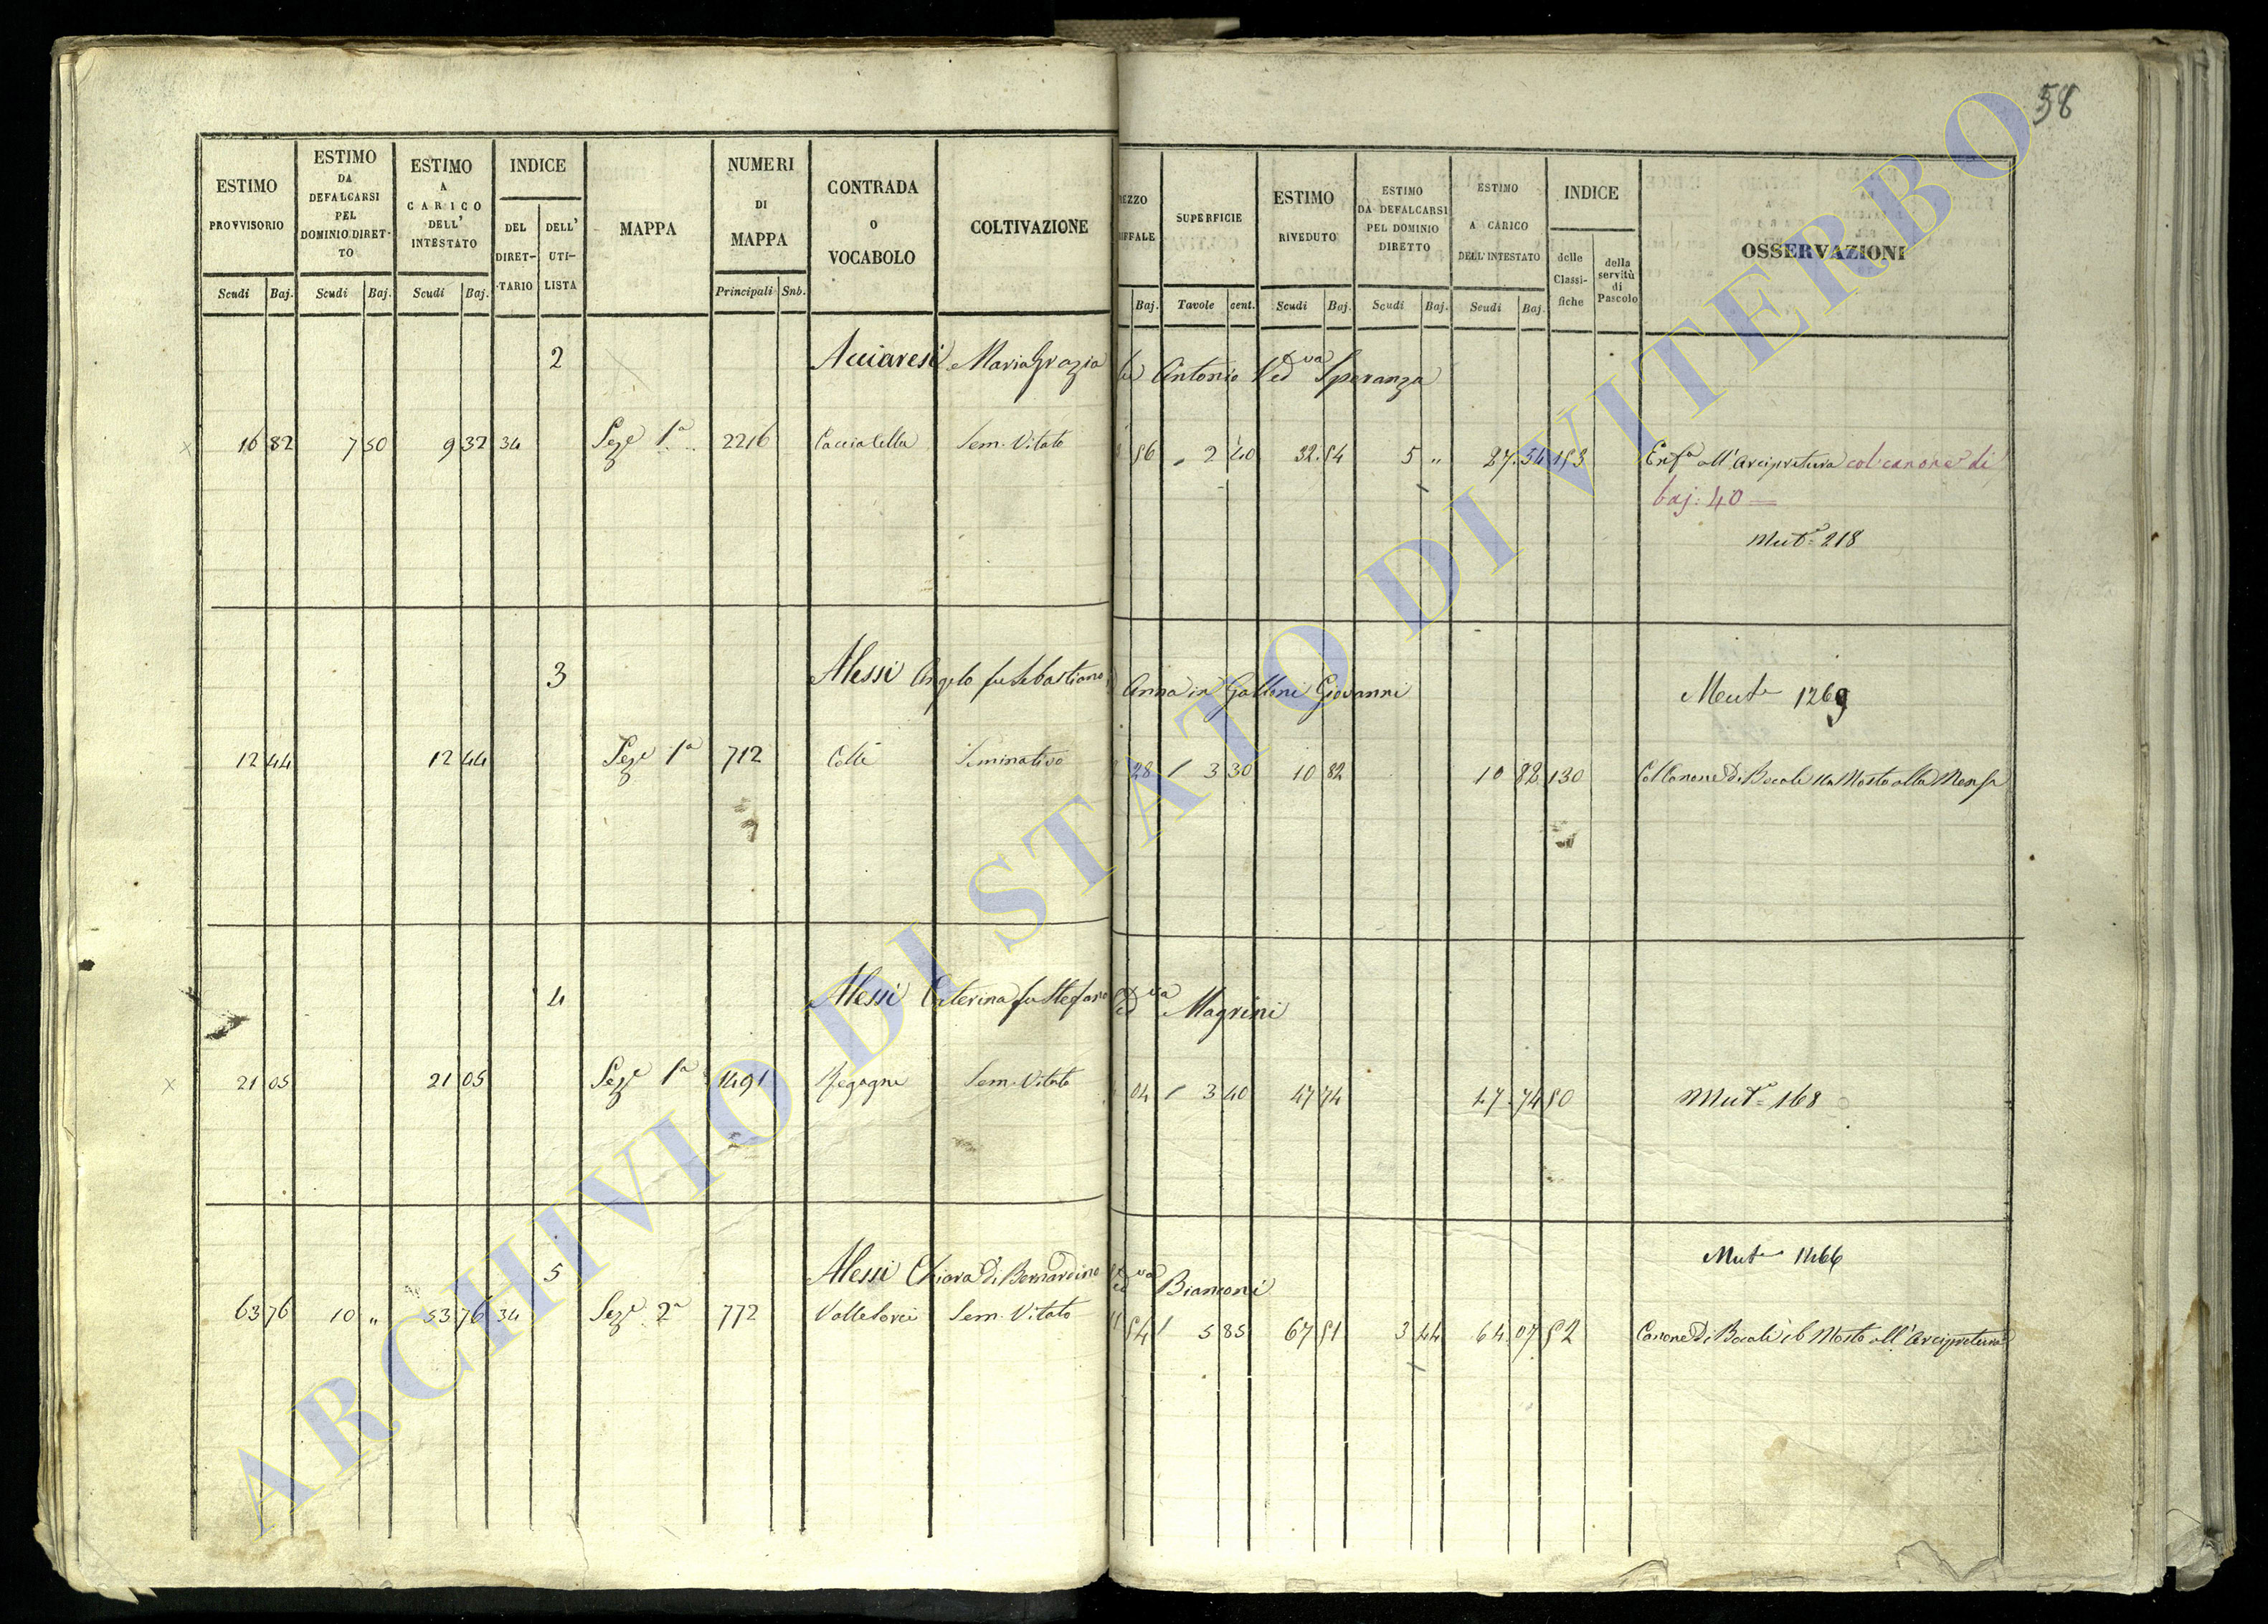 58
ESTIMO PROVVISORIO Scudi Baj.
ESTIMO DA DEFALCARSI PEL DOMINIO DIRET-TO Scudi Baj.
ESTIMO A CARICO DELL' INTESTATO Scudi Baj.
INDICE DEL DIRET-TARIO DELL' UTI-LISTA
MAPPA
NUMERI DI MAPPA Principali Snb.
CONTRADA o VOCABOLO
COLTIVAZIONE
REZZO RIFFALE Baj.
SUPERFICIE Tavole cent.
ESTIMO RIVEDUTO Scudi Baj.
ESTIMO DA DEFALCARSI PEL DOMINIO DIRETTO Scudi Baj.
ESTIMO A CARICO DELL' INTESTATO Scudi Baj.
INDICE delle Classi-fiche della servitù di Pascolo
OSSERVAZIONI
2 Acciaresi Maria Grazia fu Antonio Ved.va Speranza
16 82 7 50 9 32 34 Seze 1a 2216 Caccialella Sem. Vitato 86 2 40 32 84 5 „ 27 34 153 Enfa all'Arcipretura col canone di
baj: 40
Muta 218
3 Alessi Angelo fu Sebastiano Anna in Galloni Giovanni Mut 1269
12 44 12 44 Seze 1a 712 Colle Seminativo 28 1 3 30 10 82 10 82 130 Col Canone Di Bocali Mosto alla Mensa
4 Alessi Caterina fu Stefano Ved.va Magrini
21 05 21 05 Seze 1a 1491 Regagne Sem. Vitato 04 1 3 40 47 74 47 74 50 Muta 168
5 Alessi Chiara Di Bernardino Ved.va Bianconi Mut 1466
63 76 10 „ 53 76 34 Seze 2a 772 Sem. Vitato 84 1 5 85 67 51 3 44 64 07 52 Canone Di Bocali 16 Mosto all'Arcipretura
ARCHIVIO DI STATO DI VITERBO